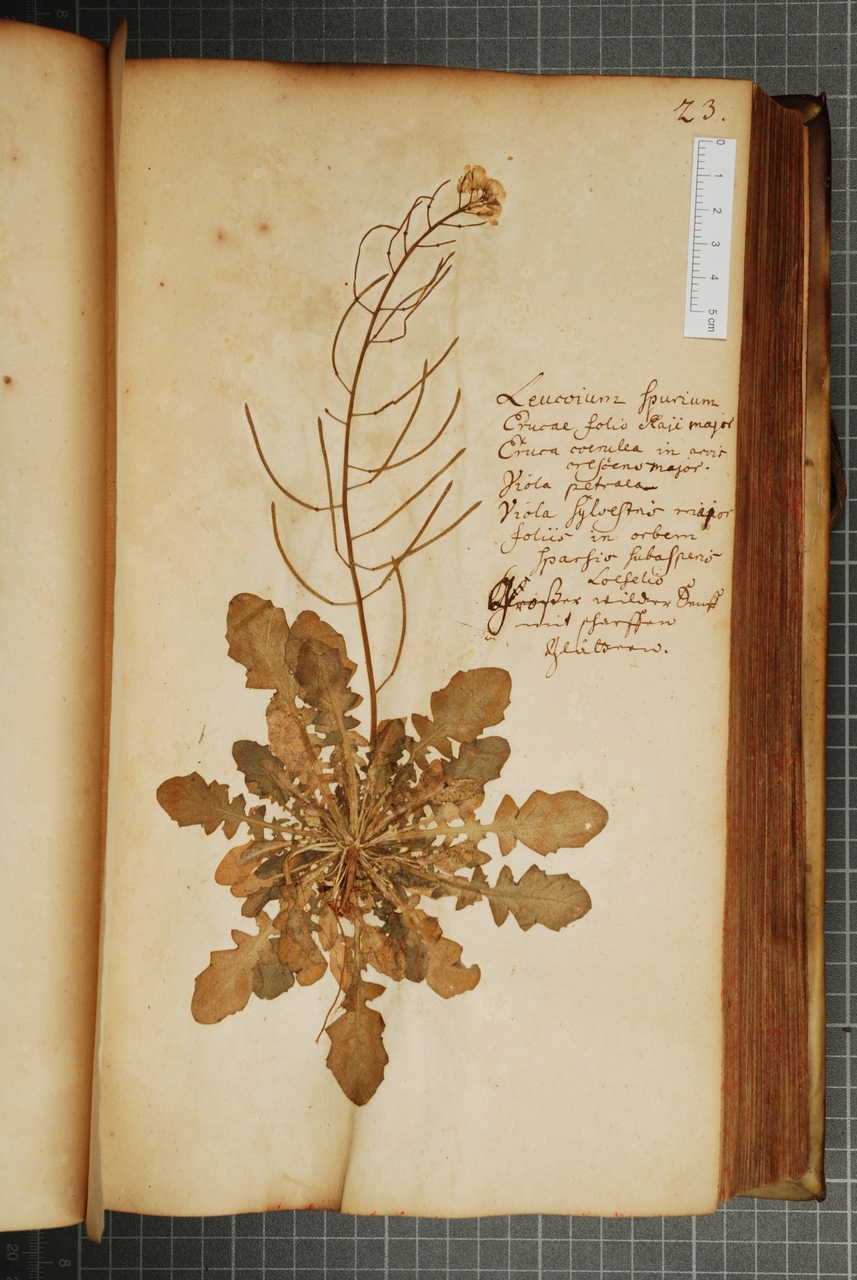 23.
0 1 2 3 4 5 cm
Leucoium spurium
Erucae folio Raii major
Eruca coerulea in arvis
crescens major.
Viola petraea
Viola sylvestris major
foliis in orbem
sparsis subasperis
Loeselio
Großer wilder Senff
mit scharffen
Blättern.
8
20
8